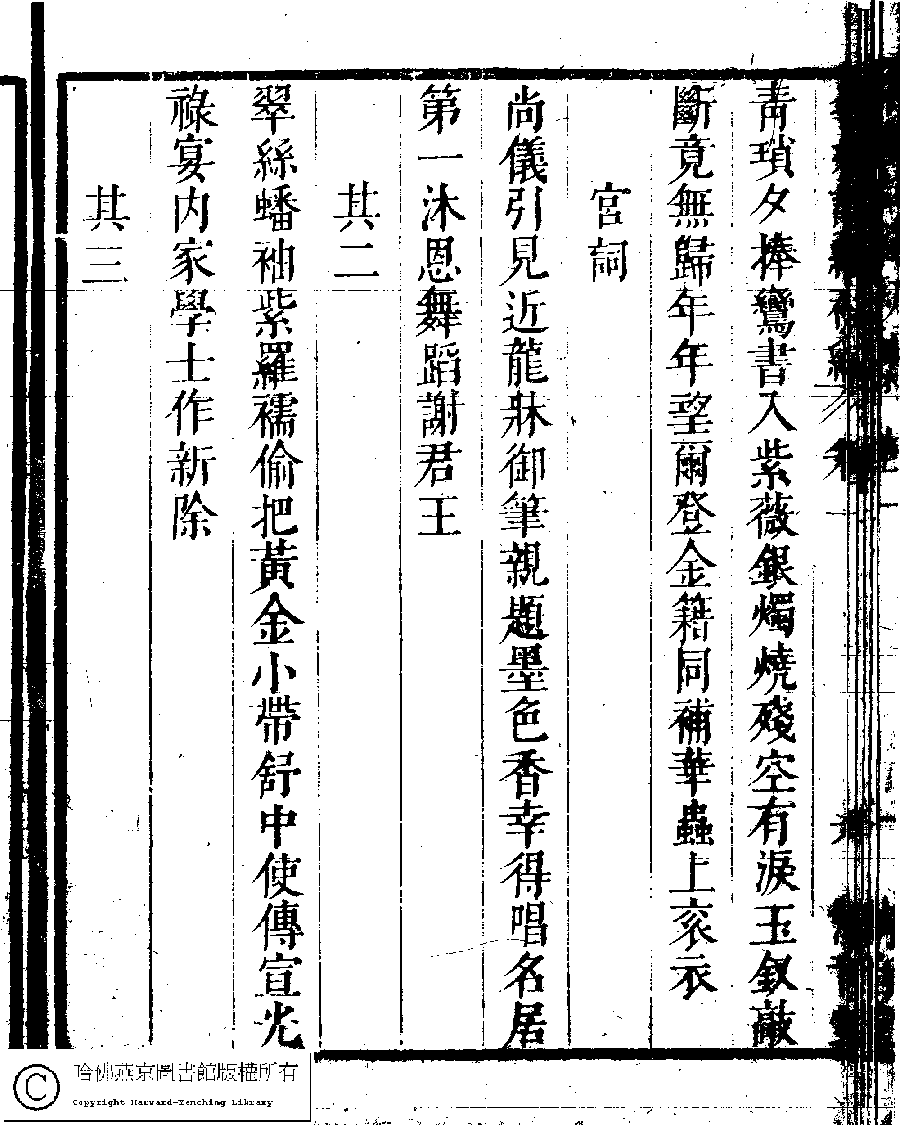 青瑣夕捧鸞書入紫薇銀燭燒殘空有淚玉釵敲
斷竟無歸年年望爾登金籍同補華蟲上衮衣
宮詞
尚儀引見近龍牀御筆親題墨色香幸得唱名居
第一沐恩舞蹈謝君王
其二
翠絲蟠袖紫羅襦偷把黃金小帶舒中使傳宣光
祿宴内家學士作新除
其三
哈佛燕京圖書館版權所有
Copyright Harvard-Yenching Library